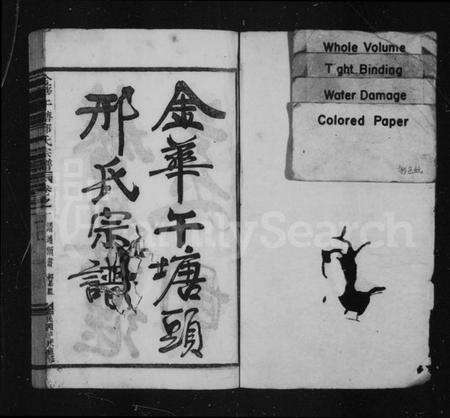 金華午塘頭
邢氏宗譜
Whole Volume
Tight Binding
Water Damage
Colored Paper
FamilySearch